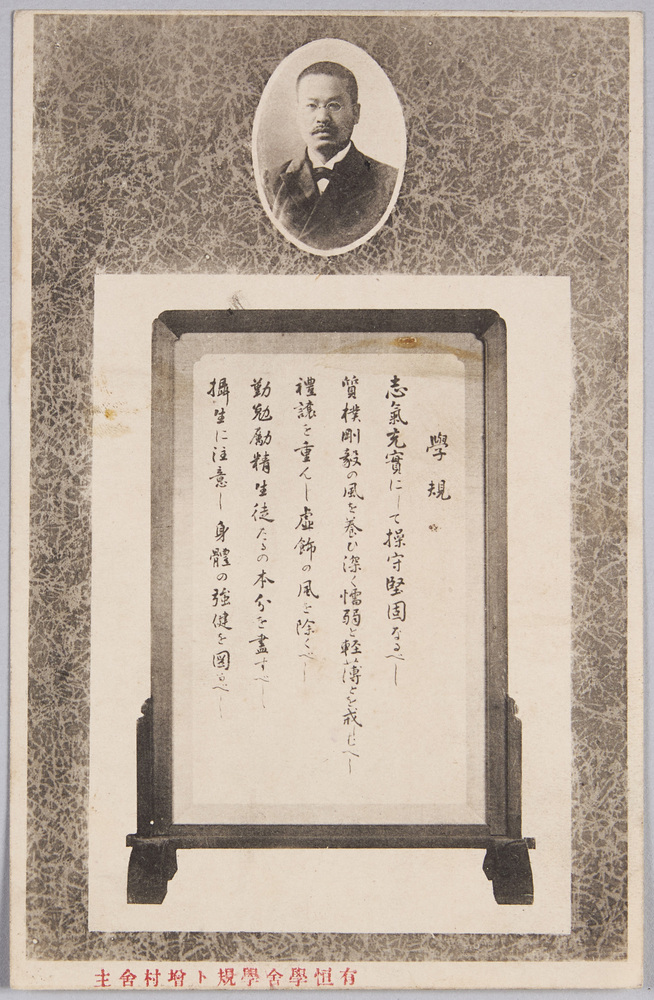 學規
志氣充實にして操守堅固なるべし
質樸剛毅の風を養ひ深く懦弱と輕薄とを戒しむべし
禮讓を重んし虛飾の風を除くべし
勤勉勵精生徒たるの本分を盡すべし
攝生に注意し身體の強健を圖るべし
有恒學舍學規ト增村舍主